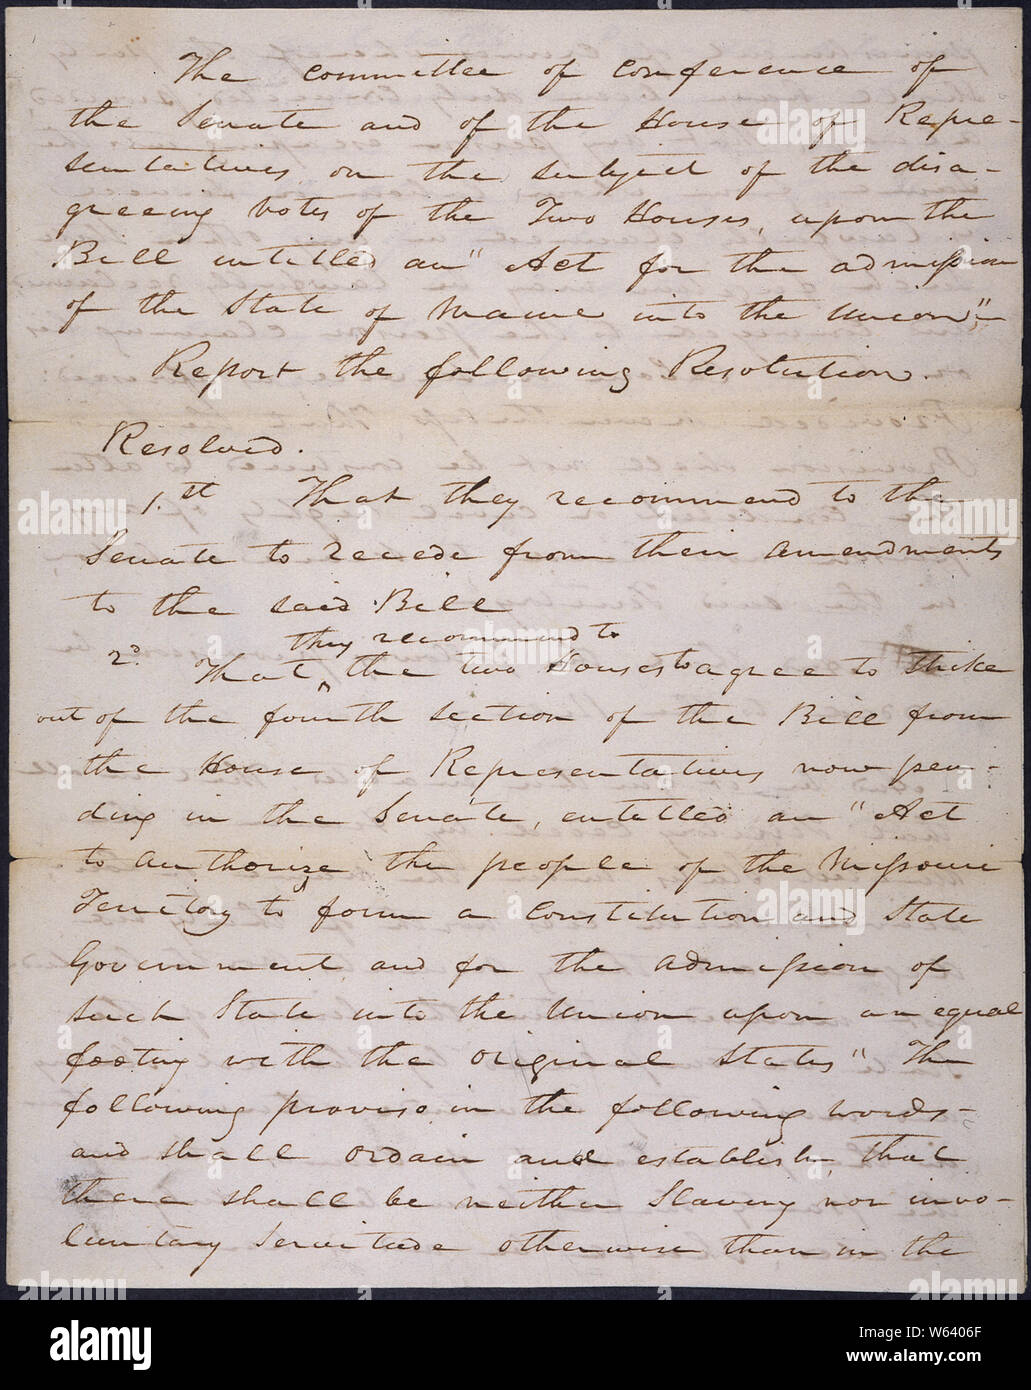 The committee of conference of
the Senate and of the House of Repre-
sentatives on the subject of the disa-
greeing votes of the Two Houses, upon the
Bill entitled an "Act for the admission
of the State of Maine into the Union"
Report the following Resolution.
Resolved.
1.st That they recommend to the
Senate to recede from their amendments
to the said Bill
they recommend to
2d. That ‸ the two Houses to agree to strike
out of the fourth section of the Bill from
the House of Representatives now pen-
ding in the Senate, entitled an "Act
to authorize the people of the Missouri
Territory to form a Constitution and State
Government and for the admission of
such State into the Union upon an equal
footing with the original States" The
following proviso in the following words-
and shall ordain and establish, that
there shall be neither Slavery nor invo-
luntary Servitude otherwise than in the
alamy
alamy
alamy
alamy
a
a
a
alamy
Image ID: W6406F
www.alamy.com